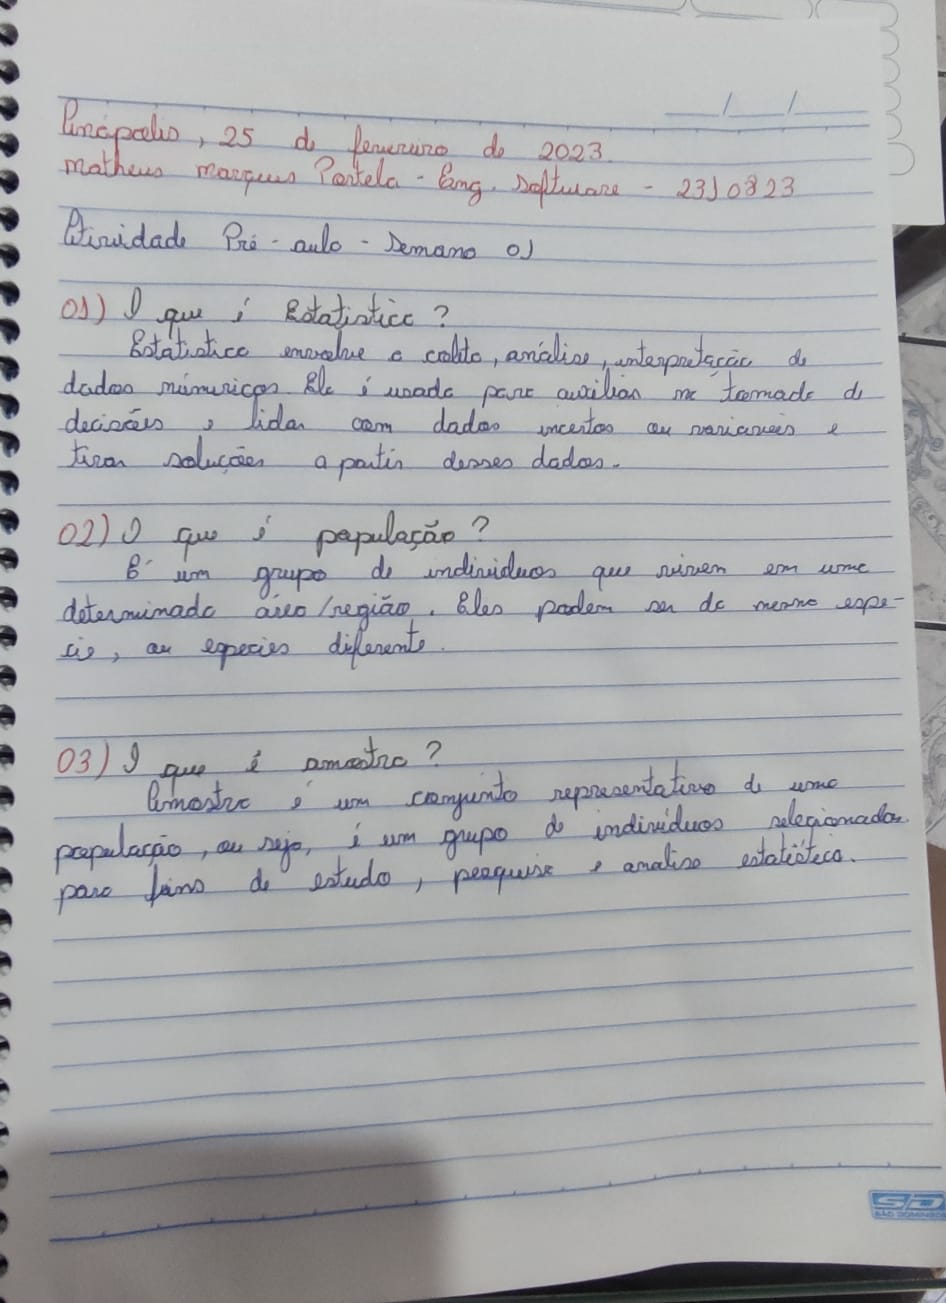 ___/___/___
Anápolis, 25 de fevereiro de 2023.
Matheus Marques Portela - Eng. Software - 2310823
Atividade Pré-aula - Semana 01
01) O que é Estatística?
Estatística envolve a coleta, análise, interpretação de
dados númericos. Ela é usada para auxiliar na tomada de
decisões, lidar com dados incertos ou variaveis e
tirar soluções a partir desses dados.
02) O que é população?
É um grupo de individuos que vivem em uma
determinada área/região. Eles podem ser da mesma espe-
cie, ou especies diferente.
03) O que é amostra?
Amostra é um conjunto representativo de uma
população, ou seja, é um grupo de individuos selecionados
para fins de estudo, pesquisa e analise estatística.
SD
SÃO DOMINGOS